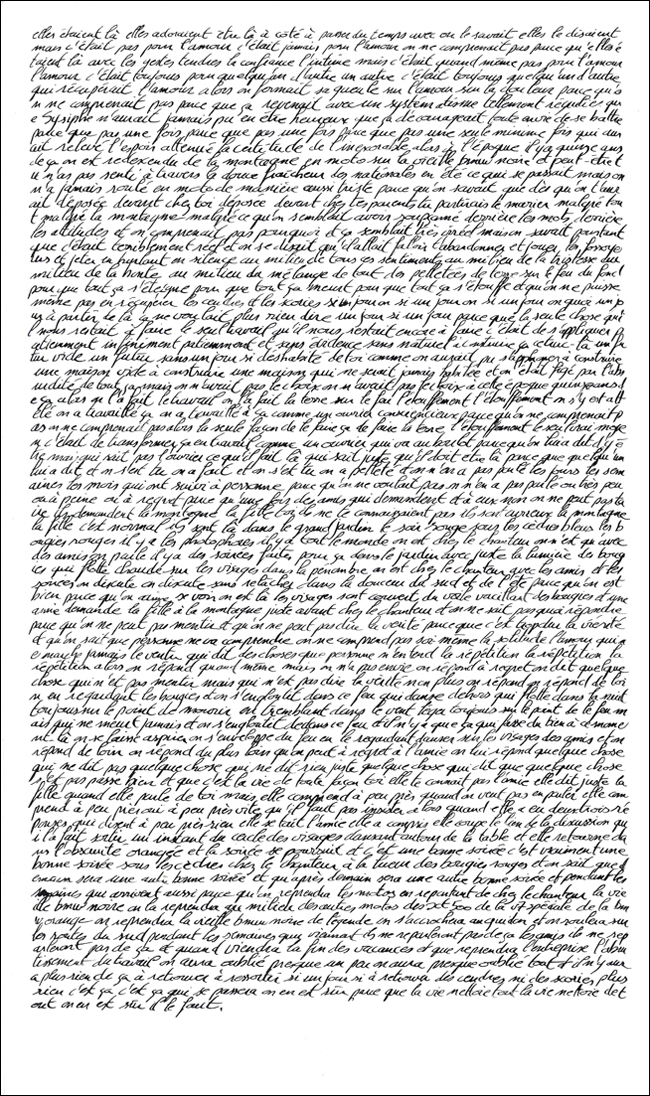 elles étaient là elles adoraient être là à côté à passer du temps avec on le savait elles le disaient
mais c'était pas pour l'amour c'était jamais pour l'amour on ne comprenait pas parce qu'elles é
taient là avec les gestes tendres la confiance l'intime mais c'était quand même pas pour l'amour
l'amour c'était toujours pour quelqu'un d'autre un autre c'était toujours quelqu'un d'autre
qui récupérait l'amour alors on fermait sa gueule sur l'amour sur la douleur parce qu'o
n ne comprenait pas parce que ça revenait avec un systématisme tellement régulier qu
e Sysiphe n'aurait jamais pu en être heureux que ça décourageait toute envie de se battre
parce que pas une fois parce que pas une fois parce que pas une seule minime fois qui aur
ait relayé l'espoir atténué la certitude de l'inexorable alors à l'époque il y a quinze ans
de ça on est redescendu de la montagne en moto sur la vieille bmw noire et peut-être t
u n'as pas senti à travers la douce fraîcheur des nationales en été ce qui se passait mais on
n'a jamais roulé en moto de manière aussi triste parce qu'on savait que dès qu'on t'aur
ait déposée devant chez toi déposée devant chez tes parents tu partirais le marier malgré tou
t malgré la montagne malgré ce qu'on semblait avoir soupçonné derrière les mots derrière
les attitudes et on comprenait pas pourquoi et ça semblait très irréel mais on savait pourtant
que c'était terriblement réel et on se disait qu'il allait falloir t'abandonner et
us et jeter en hurlant en silence au milieu de tous ces sentiments au milieu de la tristesse au
milieu de la honte au milieu du mélange de tout des pelletées de terre sur le feu du fond
pour que tout ça s'éteigne pour que tout ça meurt pour que tout ça s'étouffe et qu'on ne puisse
même pas en récupérer les cendres et les scories si un jour on si un jour on si un jour on quoi un jo
ur à partir de là ça ne voulait plus rien dire un jour si un jour parce que la seule chose qu'i
l nous restait à faire le seul travail qu'il nous restait encore à faire c'était de s'appliquer
infiniment patiemment et sans évidence sans naturel à construire ça celui-là un fu
tur vide un futur sans un jour si déshabité de toi comme on aurait pu s'appliquer à construire
une maison vide à construire une maison qui ne serait jamais habitée et on était figé par l'abs
urdité de tout ça mais on n'avait pas le choix on n'avait pas le choix à cette époque quinze ans d
e ça alors on l'a fait le travail on l'a fait la terre sur le feu l'étouffement l'étouffement on s'y est att
elé on a travaillé ça on a travaillé à ça comme un ouvrier consciencieux parce qu'on ne comprenait p
as on ne comprenait pas alors la seule façon de le faire ça de faire la terre l'étouffement le seul vrai moye
n c'était de transformer ça en travail comme un ouvrier qui va au boulot parce qu'on lui a dit d'y ê
tre mais qui sait pas l'ouvrier ce qu'il fait là qui sait juste qu'il doit être là parce que quelqu'un
lui a dit et on s'est tu on a fait et on s'est tu on a pelleté et on n'en a pas parlé les jours les sem
aines les mois qui ont suivi à personne parce qu'on ne voulait pas on n'en a pas parlé ou très peu
ou à peine ou à regret parce qu'une fois des amis qui demandent et à eux non on ne peut pas ta
ire ils demandent la montagne la fille toi ils ne te connaissaient pas ils sont curieux la montagne
la fille c'est normal ils sont là dans le grand jardin le soir rouge sous les cèdres bleus les b
ougies rouges il y a les photophores il y a tout le monde on est chez le chanteur on n'est qu'avec
des amis on parle il y a des soirées faites pour ça dans le jardin avec juste la lumière des boug
ies qui flotte chaude sur les visages dans la pénombre on est chez le chanteur avec les amis et les
soirées on discute on discute sans relâche dans la douceur du sud et de l'été parce qu'on est
bien parce qu'on aime se voir on est là les visages sont couverts du voile vacillant des bougies et une
amie demande la fille à la montagne juste avant chez le chanteur et on ne sait pas quoi répondre
parce qu'on ne peut pas mentir et qu'on ne peut pas dire la vérité parce que c'est trop dur la vérité
et qu'on sait que personne ne va comprendre on ne comprend pas soi même la solitude l'amour qui n
e marche jamais le ventre qui dit des choses que personne n'entend la répétition la répétition la
répétition alors on répond quand même mais on n'a pas envie on répond à regret on dit quelque
chose qui n'est pas mentir mais qui n'est pas dire la vérité non plus on répond on répond de loi
n en regardant les bougies et on s'engloutit dans ce feu qui danse dehors qui flotte dans la nuit
toujours sur le point de mourir au tremblant dans le vent léger toujours sur le point de le feu m
ais qui ne meurt jamais et on s'engloutit dedans ce feu et il n'y a que ça qui fasse du bien à ce mome
nt là on se laisse aspirer on s'enveloppe du feu en le regardant danser sur les visages des amis et on
répond de loin on répond du plus loin qu'on peut à regret à l'amie on lui répond quelque chose
qui ne dit pas quelque chose qui ne dit rien juste quelque chose qui dit que quelque chose
s'est pas passé bien et que c'est la vie de toute façon toi elle te connaît pas l'amie elle dit juste la
fille quand elle parle de toi mais elle comprend à peu près quand on veut pas en parler elle com
prend à peu près oui à peu près vite qu'il faut pas insister alors quand elle a eu deux trois ré
ponses qui disent à peu près rien elle se tait l'amie elle a compris elle coupe le son de la discussion qu
i la fait sortir un instant du cercle des visages dansant autour de la table et elle retourne da
ns l'obscurité orangée et la soirée se poursuit et c'est une bonne soirée c'est vraiment une
bonne soirée sous les cèdres chez le chanteur à la lueur des bougies rouges et on sait que d
emain sera une autre bonne soirée et qu'après demain sera une autre bonne soirée et pendant les
semaines qui arrivent aussi parce qu'on reprendra les motos en repartant de chez le chanteur la vie
ille bmw noire on la reprendra au milieu des autres motos des
orange on reprendra la vieille bmw noire de légende on s'accrochera au guidon et on roulera sur
les routes du sud pendant les semaines qui viennent ils ne reparleront pas de ça les amis ils ne rep
arleront pas de ça et quand viendra la fin des vacances et que reprendra l'entreprise l'abru
tissement du travail on aura oublié presque un peu on aura presque oublié tout et il n'y aur
a plus rien de ça à retrouver à ressortir si un jour si à retrouver les cendres ni des scories plus
rien c'est ça c'est ça qui se passera on en est sûr parce que la vie nettoie tout la vie nettoie de t
out on en est sûr il le faut.